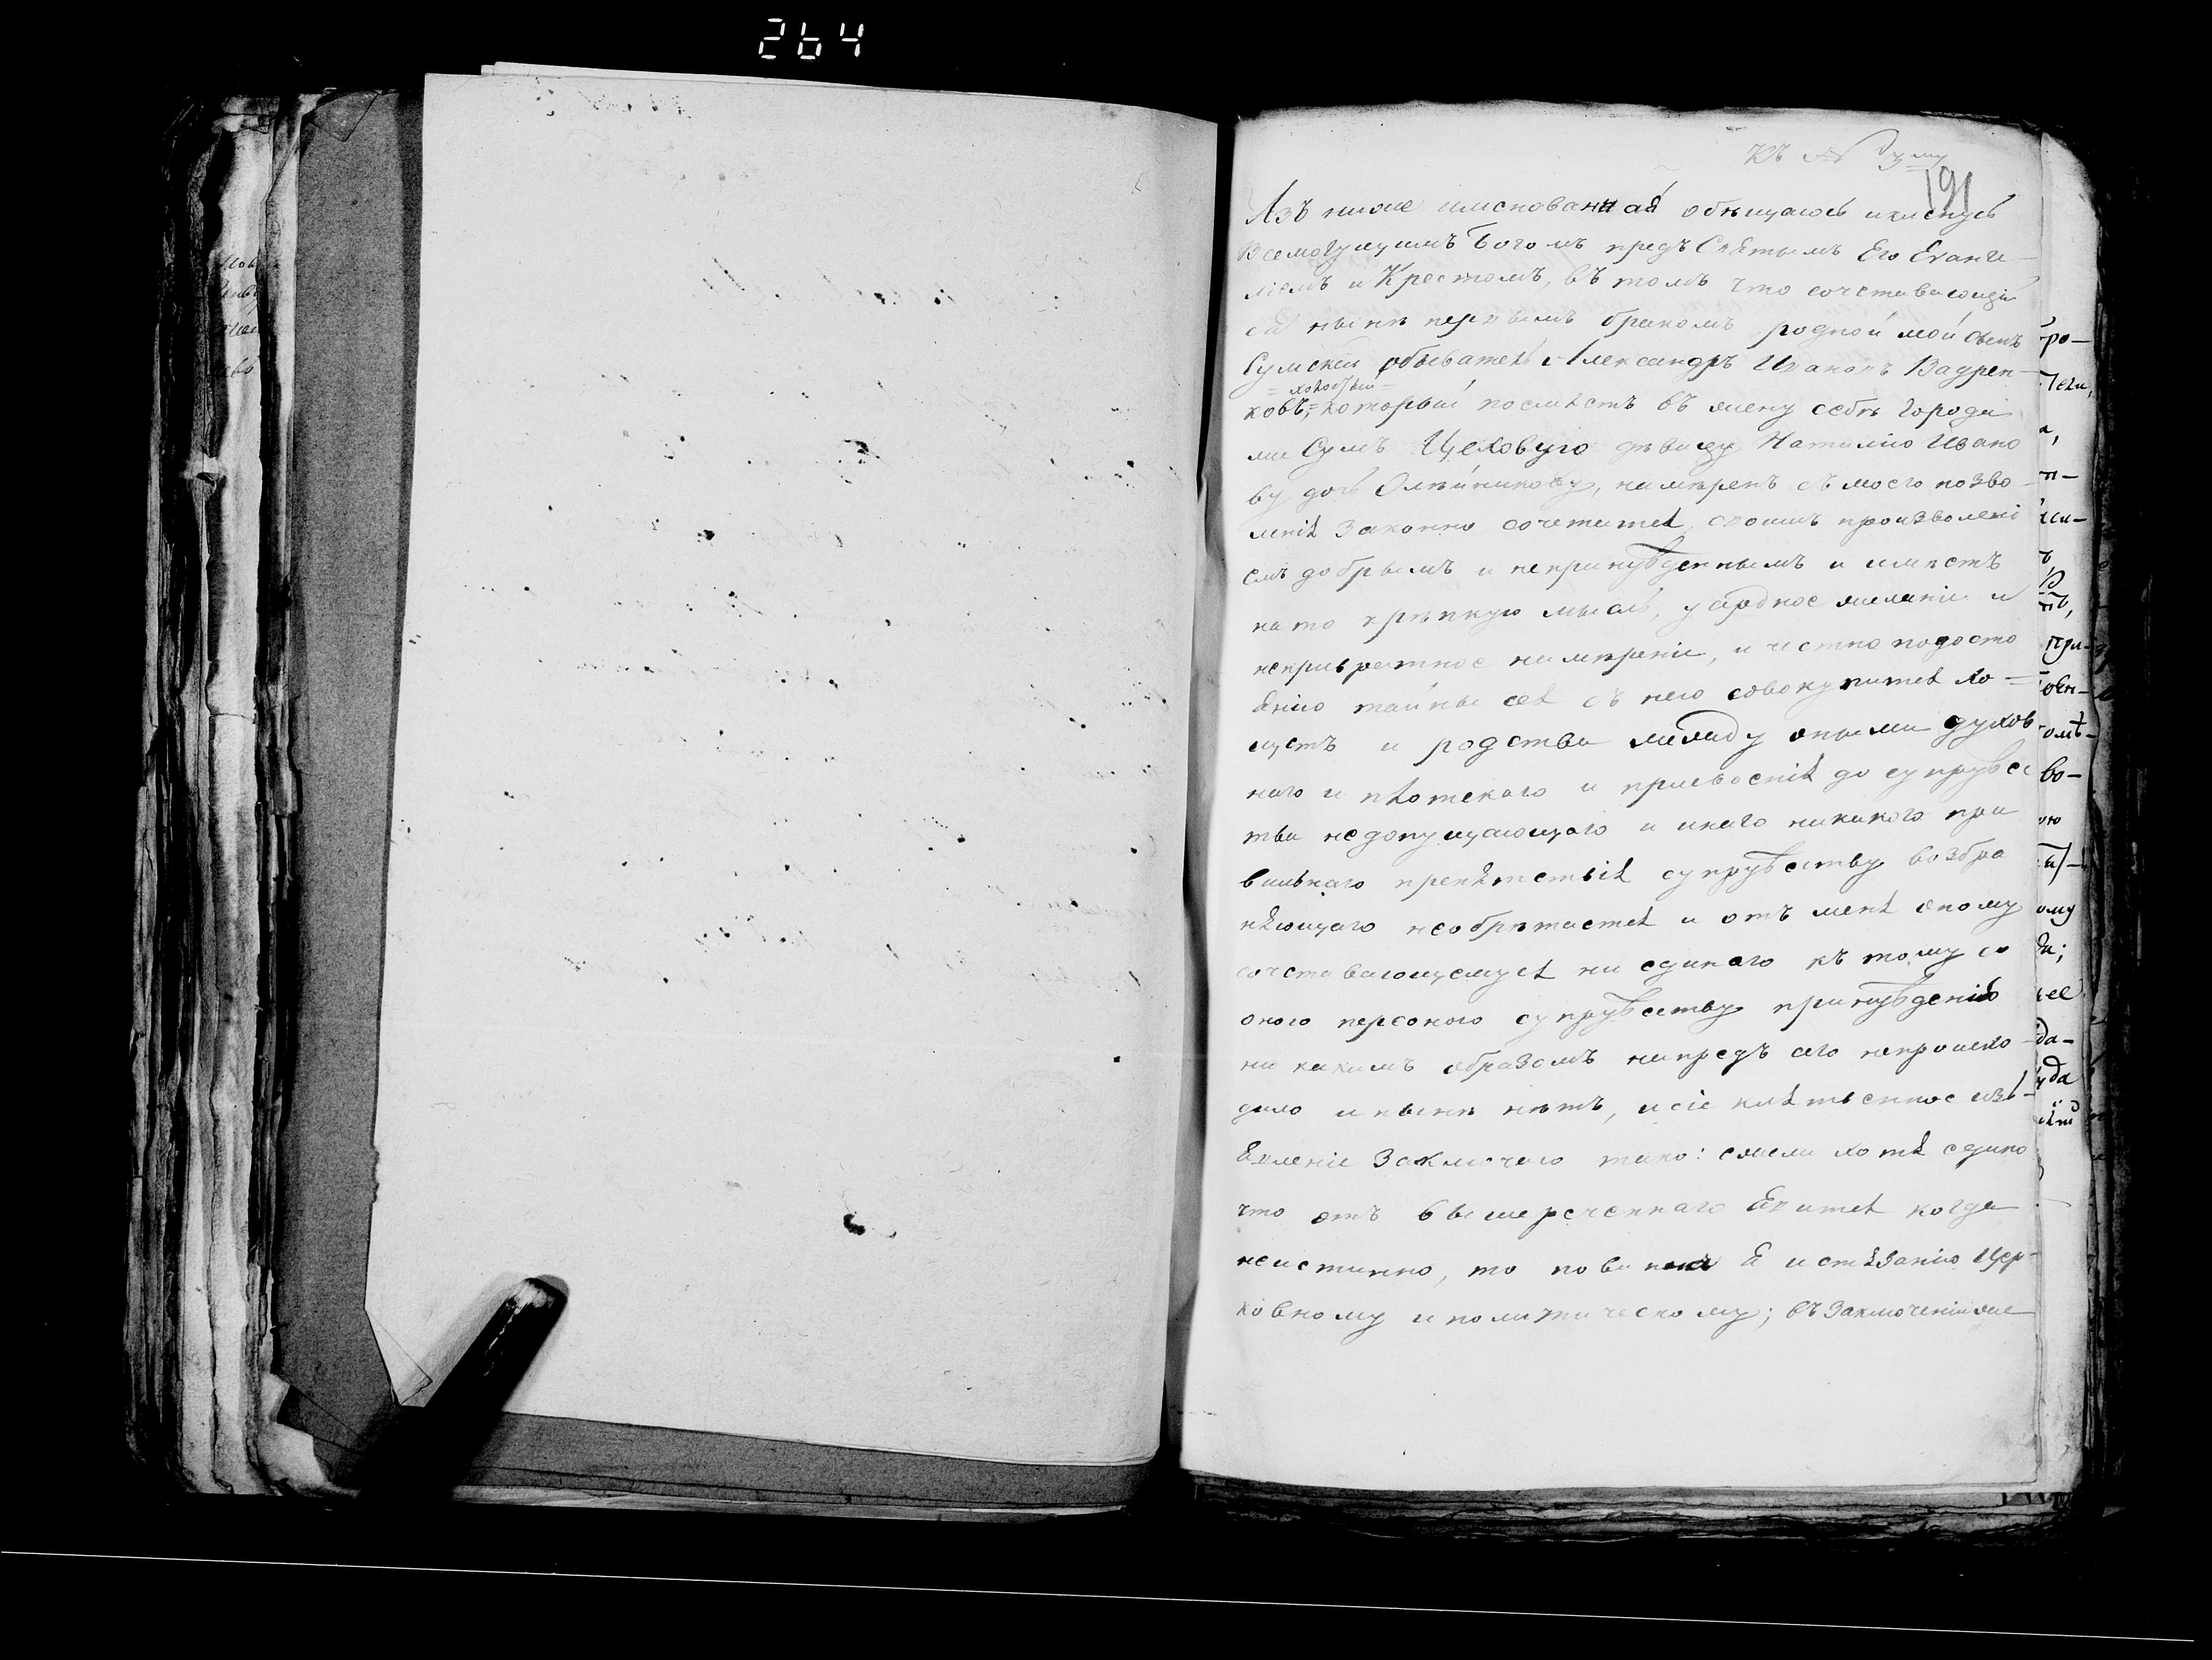 264
Къ № 3му
191
Азъ ниже имянованная обѣщаюсь и клянусь
Всемогущимъ Богомъ предъ Святымъ Его Еванге-
ліемъ и Крестомъ, въ томъ что сочетавающій
ся нынѣ первымъ бракомъ родной мой сынъ
Сумской обыватель Александръ Ивановъ Вадрен-
= холостый =
ковъ,= который поемлетъ въ жену себѣ города
ми Сумъ Цеховую дѣвицу Наталію Ивано
ву дочь Олѣйникову, намѣренъ съ моего позво-
ленія законно сочетатся, своимъ произволені
емъ добрымъ и непринужденнымъ и имѣетъ
на то крѣпкую мысль, усердное желаніе и
непревратное намѣреніе, и честно подосто
янію тайны сея съ нею совокупится хо-
щетъ и родства между оными духов
наго и плотскаго и присвоенія до супружес
тва недопущающаго и инаго никакого пра
вильнаго препятствія супружеству возбра
няющаго необрѣтается и отъ меня оному
сочетавающемуся ни единаго къ тому со
оною персоною супружеству принужденія
ни какимъ образомъ напредъ сего непроисхо
дило и нынѣ нѣтъ, и сіе клятвенное изъ-
явленіе заключаю тако: ежели хотя едино
что отъ вышереченнаго явится когда
неистинно, то повинна я истязанію Цер-
ковному и политическому; въ заключеніи же